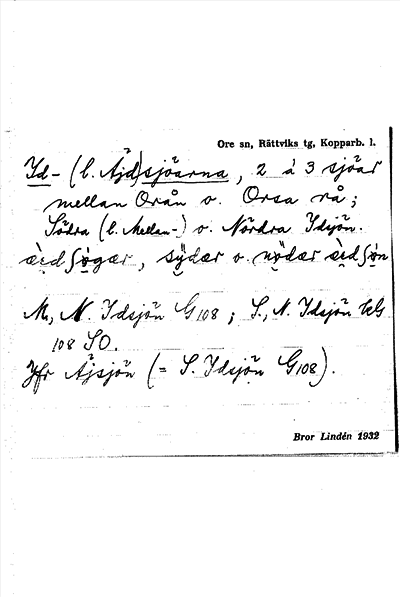 Ore sn, Rättviks tg, Kopparb. l.
Id- (l. Ajd)sjöarna, 2 à 3 sjöar
mellan Orån o. Orsa rå;
Södra (l. Mellan-) o. Nördra Idsjön.
M, N. Idsjön G108; S., N. Idsjön
108 SO.
Jfr Ajsjön (= S. Idsjön G108).
Bror Lindén 1932